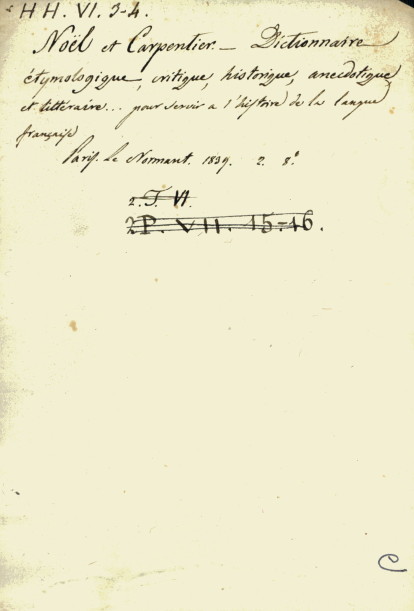 HH. VI. 3-4.
Noël et Carpentier. — Dictionnaire
étymologique, critique, historique, anecdotique
et littéraire... pour servir a l'histoire de la langue
française
Paris. Le Normant. 1839. 2. 8.º
2. T. VI.
2 P. VII. 45-46.
C